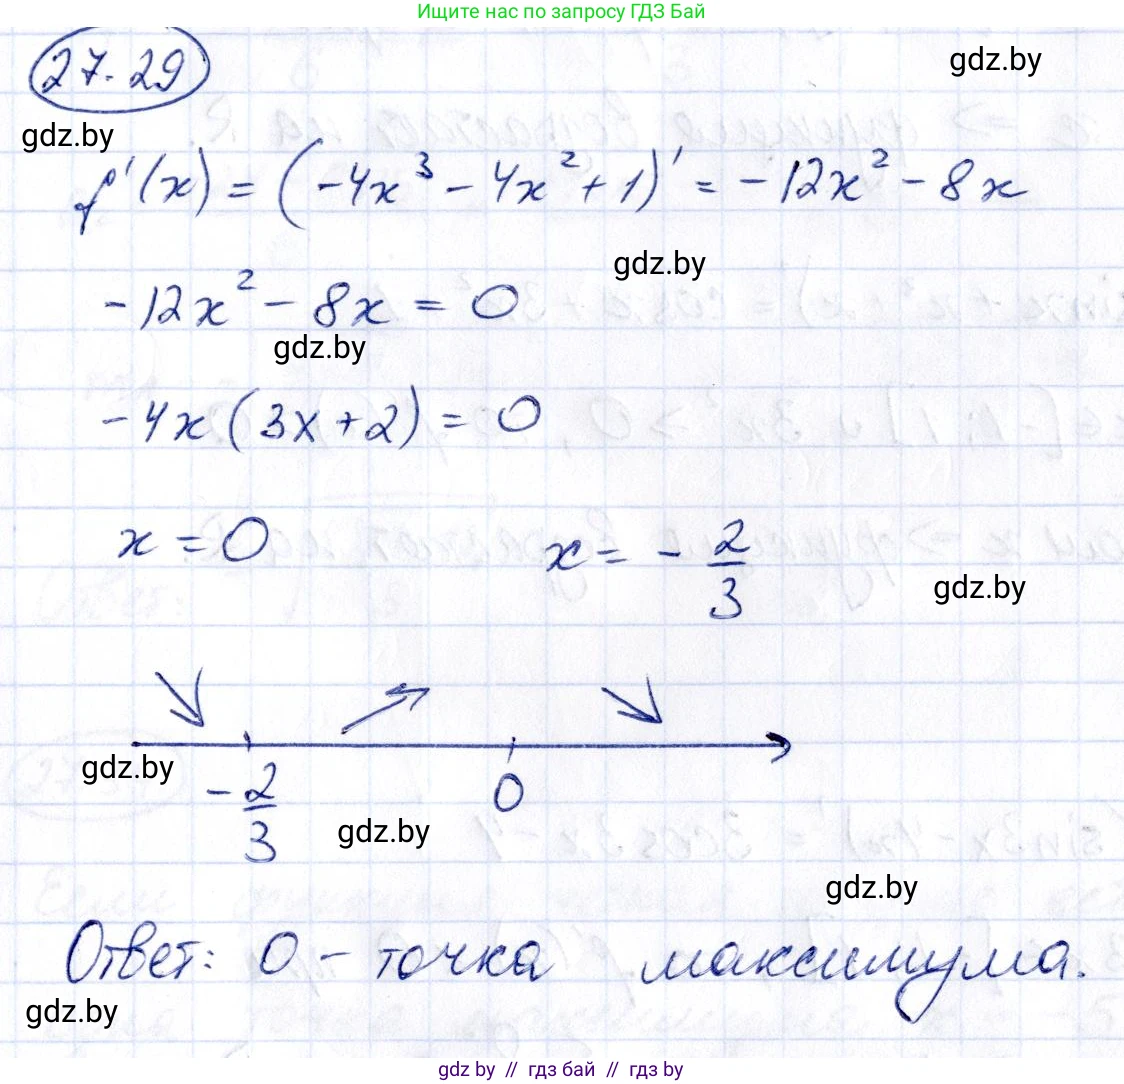 Ищите нас по запросу ГДЗ Бай
27.29
gdz.by
gdz.by
f'(x) = (-4x³ - 4x² + 1)' = -12x² - 8x
gdz.by
-12x² - 8x = 0
gdz.by
-4x(3x+2) = 0
x = 0 x = -2/3
gdz.by
gdz.by
-2/3 0
gdz.by
gdz.by
Ответ: 0 - точка максимума.
gdz.by
gdz by // гдз бай // гдз by